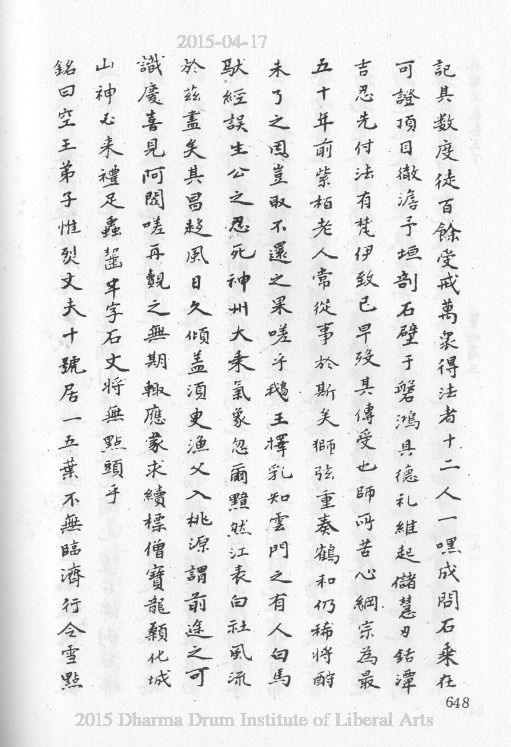 2015-04-17
記其数度徒百餘受戒萬眾得法者十二人一嘿成問石乗在
可證頂目徹澹予垣剖石壁于磐鴻具德礼維起儲慧刃銛潭
吉忍先付法有梵伊致已早歿其傳受也師所苦心綱宗為最
五十年前紫栢老人常從事於斯矣獅弦重奏鶴和仍稀将酧
未了之因豈取不還之果嗟乎鵝王擇乳知雲門之有人白馬
馱經誤生公之忍死神州大乗氣象忽爾黯然江表白社風流
於兹盡矣其昌趍風日久傾盖湏更漁父入桃源謂前途之可
識慶喜見阿閦嗟再覩之無期輙應蒙求續標僧寶龍顙化城
山神必来禮足蟲齧牢字石丈将無點頭乎
銘曰空王弟子惟烈丈夫十號居一五葉不無臨濟行令雪點
648
2015 Dharma Drum Institute of Liberal Arts